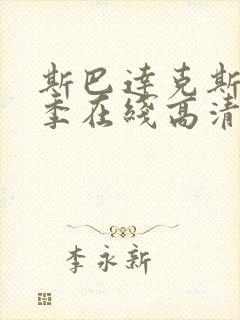 斯巴達克斯
季在綫高清
李永新